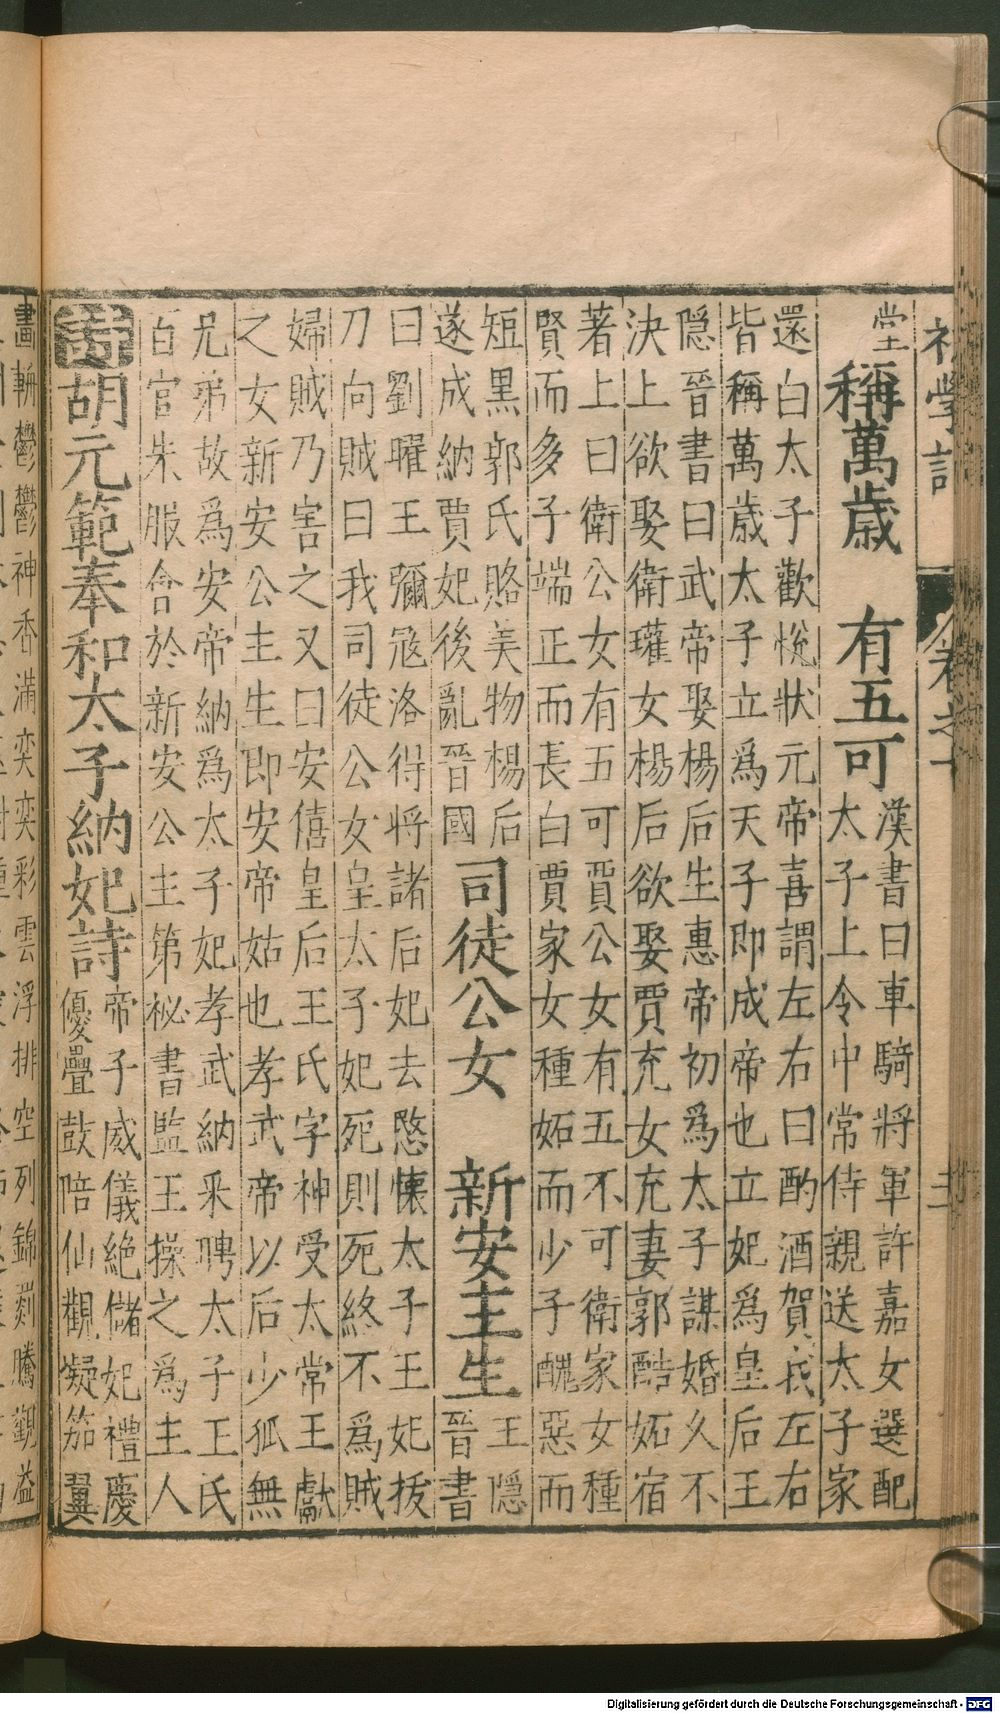 初學記 卷之十
堂
稱萬歲 有五可
漢書曰車騎將軍許嘉女選配
太子上令中常侍親送太子家
還白太子歡悅狀元帝喜謂左右曰酌酒賀我左右
皆稱萬歲太子立爲天子即成帝也立妃爲皇后王
隱晉書曰武帝娶楊后生惠帝初爲太子謀婚久不
決上欲娶衛瓘女楊后欲娶賈充女充妻郭酷妬宿
著上曰衛公女有五可賈公女有五不可衛家女種
賢而多子端正而長白賈家女種妬而少子醜惡而
短黑郭氏賂美物楊后
遂成納賈妃後亂晉國
司徒公女 新安主生
王隱
晉書
曰劉曜王彌寇洛得將諸后妃去愍懷太子王妃拔
刀向賊曰我司徒公女皇太子妃死則死終不爲賊
婦賊乃害之又曰安僖皇后王氏字神受太常王獻
之女新安公主生即安帝姑也孝武帝以后少孤無
兄弟故爲安帝納爲太子妃孝武納采聘太子王氏
百官朱服會於新安公主第祕書監王操之爲主人
詩 胡元範奉和太子納妃詩
帝子威儀絕儲妃禮慶
優疊鼓陪仙觀凝笳翼
畫輈鬱鬱神香滿奕奕彩雲浮排空列錦罽騰觀溢
Digitalisierung gefördert durch die Deutsche Forschungsgemeinschaft - DFG